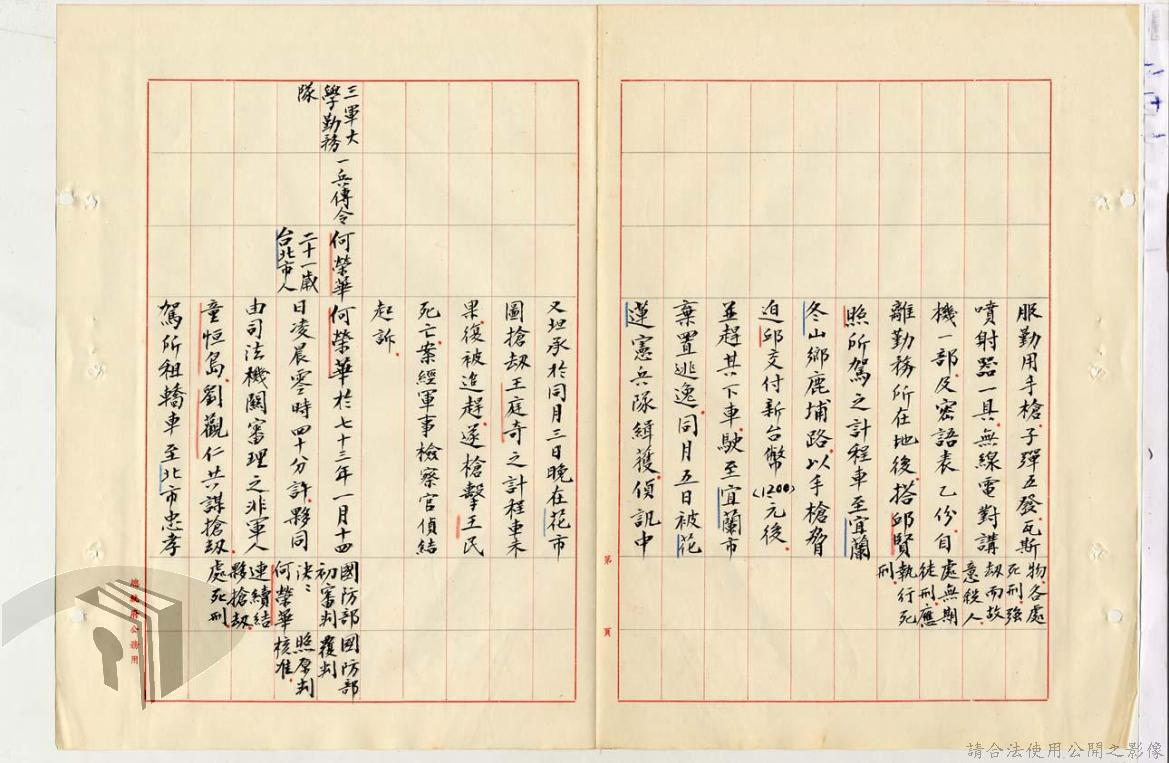 服勤用手槍、子彈五發、瓦斯
噴射器一具、無線電對講
機一部、及密語表乙份、自
離勤務所在地後、搭邱賢
照所駕之計程車至宜蘭
冬山鄉鹿埔路、以手槍脅
迫邱交付新台幣(1200)元後、
並趕其下車、駛至宜蘭市
棄置逃逸、同月五日被花
蓮憲兵隊緝獲、偵訊中
物、各處
死刑、強
劫而故
意殺人、
處無期
徒刑、應
執行死
刑。
第 頁
又坦承於同月三日晚在花市
圖搶劫王庭奇之計程車未
果、復被追趕、遂槍擊王民
死亡、案經軍事檢察官偵結
起訴、
三軍大
學勤務
隊
一兵傳令
何榮華
二十一歲
台北市人
何榮華於七十三年一月十四
日凌晨零時四十分許、夥同
由司法機關審理之非軍人
童恒島、劉觀仁共謀搶劫、
駕所租轎車至北市忠孝
國防部
初審判
決：
何榮華
連續結
夥搶劫、
處死刑
國防部
覆判
照原判
核准、
總統府公務用
請合法使用公開之影像